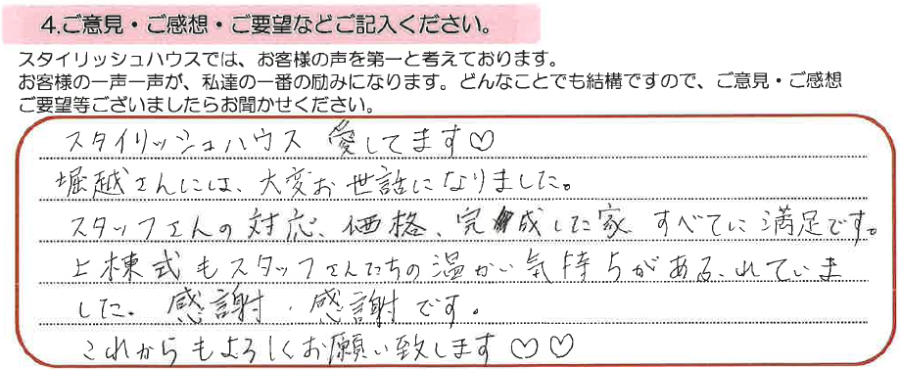 4.ご意見・ご感想・ご要望などご記入ください。
スタイリッシュハウスでは、お客様の声を第一と考えております。
お客様の一声一声が、私達の一番の励みになります。どんなことでも結構ですので、ご意見・ご感想
ご要望等ございましたらお聞かせください。
スタイリッシュハウス 愛してます♡
堀越さんには、大変お世話になりました。
スタッフさんの対応、価格、完成した家 すべてに満足です。
上棟式もスタッフさんたちの温かい気持ちがあふれていま
した。感謝、感謝です。
これからもよろしくお願い致します♡♡